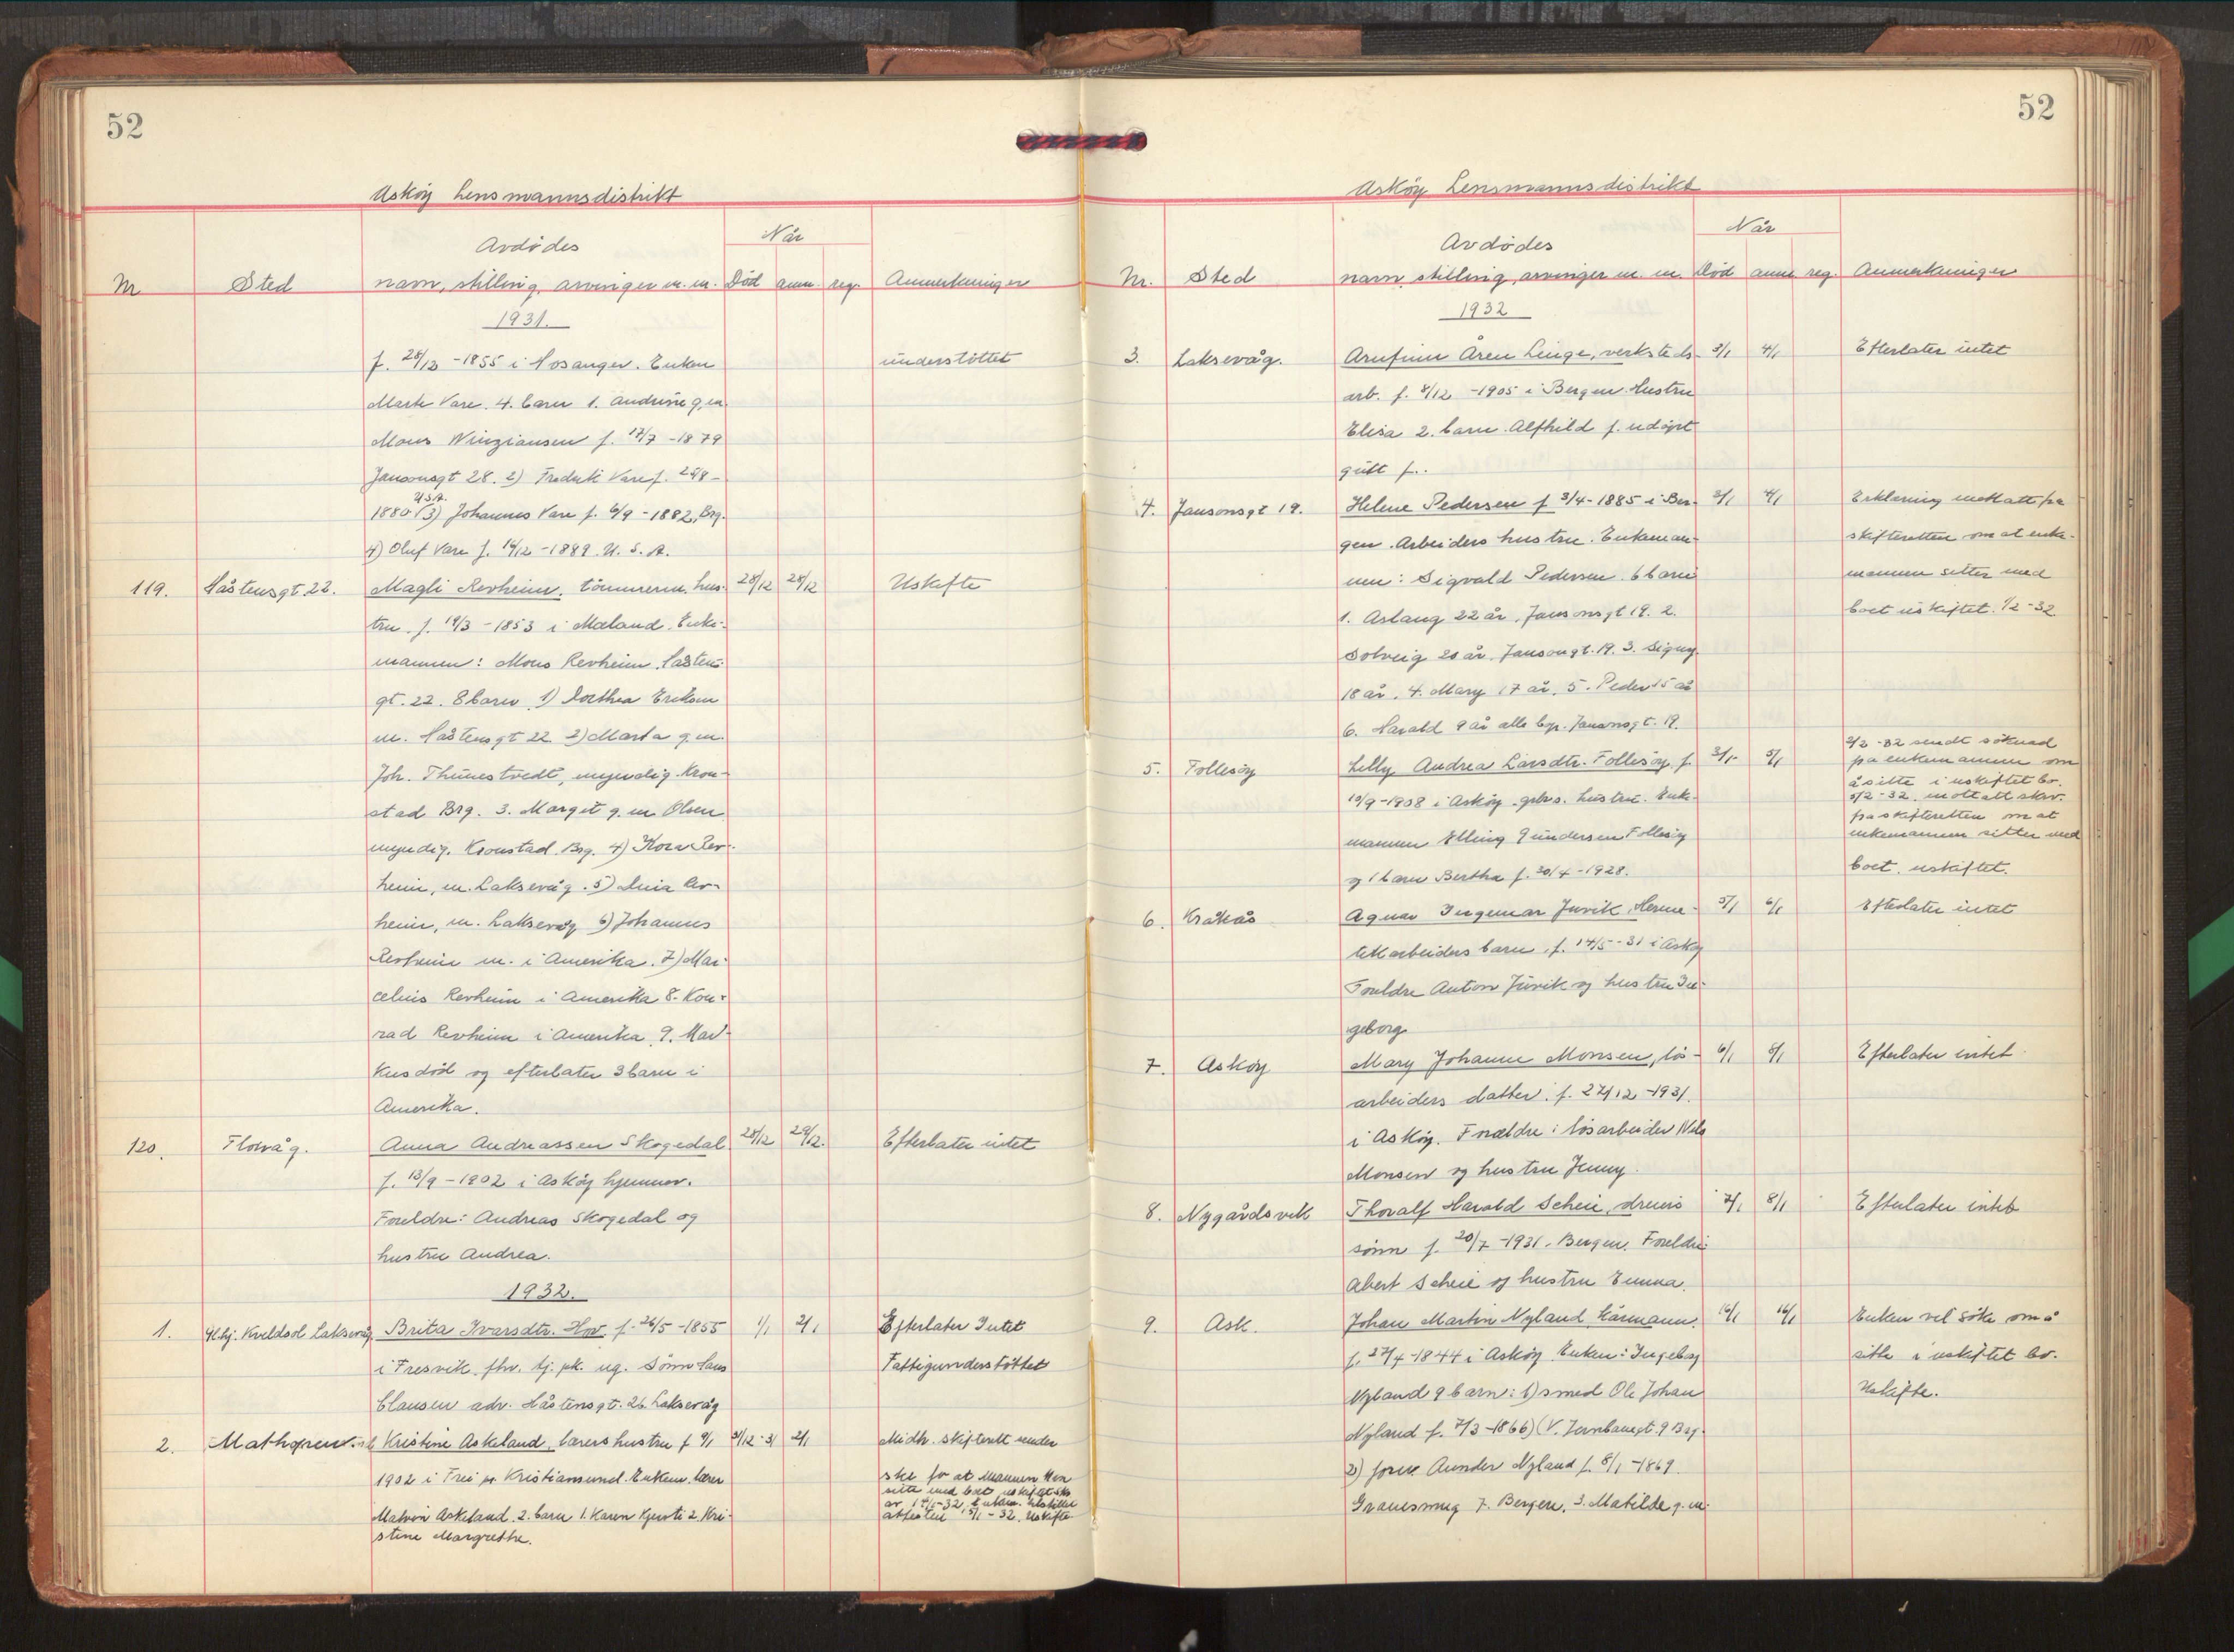 52
Askøy Lensmannsdistrikt
Når
Avdødes
Nr Sted navn, stilling, arvinger m. m. Død anm. reg. Anmerkninger
1931.
f. 28/12 -1855 i Hosanger. Enken understöttet
Marte Vare. 4. barn 1. Andrine g.m.
Mons f. 17/7 -1879
Jansonsgt 28. 2) Fredrik Vare f.
U.S.A.
1880 3) Johannes Vare f. 6/9 -1882, Brg.
4) Oluf Vare f. 14/12 -1889. U. S. A.
119. Håstensgt. 22. Magli Revheim, tömmerm. hus- 28/12 28/12 Uskifte
tru. f. 19/3 -1853 i Mæland. Enke-
mannen: Mons Revheim, Håstens-
gt. 22. 8 barn 1) Dorthea Eriksen
m. Håstensgt 22. 2) Marta g.m.
Joh. Thunestvedt, myndig. Kron-
stad Brg. 3. Marget g. m. Olsen
myndig. Kronstad Brg. 4) Rev-
heim, m. Laksevåg. 5) Rev-
heim, m. Laksevåg 6) Johannes
Revheim m. i Amerika. 7) Mar-
celius Revheim i Amerika 8. Kon-
rad Revheim i Amerika 9. Mar-
kus död og efterlater 3 barn i
Amerika.
120. Florvåg. Anna Andreassen Skogedal 28/12 29/12. Efterlater intet
f. 13/9 -1902 i Askøy hjemmev.
Foreldre: Andreas Skogedal og
hustru Andrea.
1932.
1. Kveldsol Laksevåg. Brita Ivarsdtr. Hov f. 26/5 -1855 1/1 2/1 Efterlater Intet
i Fresvik, fhv. tj. pk. ug. Sönn Hans Fattigunderstöttet
Clausen adr. Håstensgt. 26 Laksevåg
2. Mathopen Kristine Askeland, lærers hustru f 9/1 31/12-31 2/1 Midh. skifterett under
1902 i Frei pr. Kristiansund. Enkem. lærer ske for at mannen kan
sitte med boet uskiftet
Malvin Askeland. 2. barn 1. Karen Kjersti 2. Kri- attesten 15/1 - 32. Uskifte
stine Margrethe.
52
Askøy Lensmannsdistrikt
Når
Avdødes
Nr. Sted navn, stilling, arvinger m. m. Død anm. reg. Anmerkninger
1932
3. Laksevåg. Arnfinn Åren Leinge, verksteds- 3/1 4/1 Efterlater intet
arb. f. 8/12 -1905 i Bergen. Hustru
Elisa 2. barn. Alfhild f. udöpt
gutt f..
4. Jansonsgt 19. Helene Pedersen f 3/4-1885 i Ber- 3/1 4/1 Erklæring mottatt fra
gen. Arbeiders hustru. Enkeman- skifteretten om at enke-
nen: Sigvald Pedersen. 6 barn mannen sitter med
1. Aslaug 22 år, Jansonsgt 19. 2. boet uskiftet. 1/2-32
Solveig 20 år. Jansongt. 19. 3. Signy
18 år, 4. Mary 17 år, 5. Peder 15 år
6. Harald 9 år alle bop. Jansonsgt. 19.
5. Follesøy Lilly Andrea Larsdtr. Follesøy f. 3/1 5/1 2/2-32 sendt söknad
fra enkemannen om
å sitte i uskiftet bo.
10/9-1908 i Askøy gbrs. hustru. Enke- 5/2-32. mottatt skr.
fra skifteretten om at
mannen Elling Gundersen Follesøy enkemannen sitter med
og 1 barn Bertha f. 30/4 -1928. boet uskiftet.
6. Kråkås Agnar Ingemar Juvik, Herme- 5/1 6/1 Efterlater intet
tikkarbeiders barn, f. 14/5-31 i Askøy
Foreldre Anton Juvik og hustru In-
geborg
7. Askøy Mary Johanne Monsen, lös- 6/1 8/1 Efterlater intet
arbeiders datter. f. 27/12 -1931.
i Askøy. Foreldre: lösarbeider Nils
Monsen og hustru Jenny.
8. Nygårdsvik Thoralf Harald Scheie, dreiers 7/1 8/1 Efterlater intet
sönn f. 20/7 -1931. Bergen. Foreldre
Abert Scheie og hustru Emma.
9. Ask. Johan Martin Nyland, kårmann. 16/1 16/1 Enken vil söke om å
f. 27/4 -1844 i Askøy. Enken: Ingeborg sitte i uskiftet bo.
Nyland 9 barn: 1) smed Ole Johan Uskifte.
Nyland f. 7/3 -1866) (V. Jernbanegt. 9 Brg.
2) Gunder Nyland f. 8/1 -1869.
7. Bergen, 3. Matilde g. m.